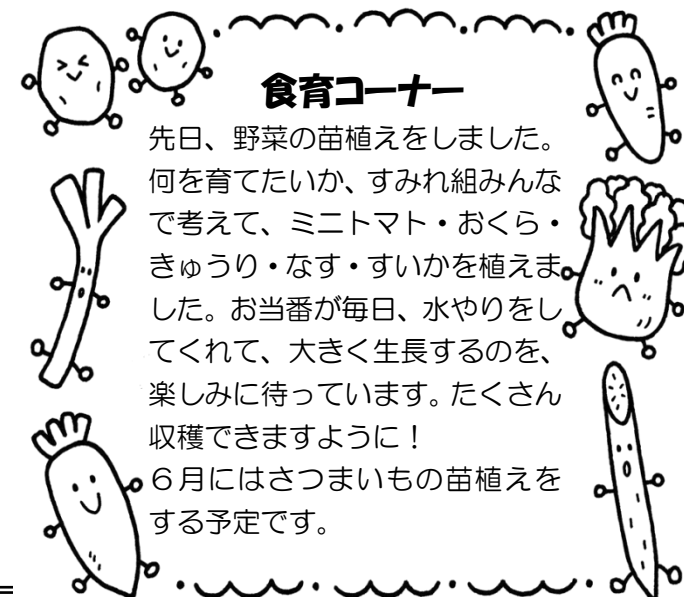 食育コーナー
先日、野菜の苗植えをしました。
何を育てたいか、すみれ組みんな
で考えて、ミニトマト・おくら・
きゅうり・なす・すいかを植えま
した。お当番が毎日、水やりをし
てくれて、大きく生長するのを、
楽しみに待っています。たくさん
収穫できますように！
６月にはさつまいもの苗植えを
する予定です。